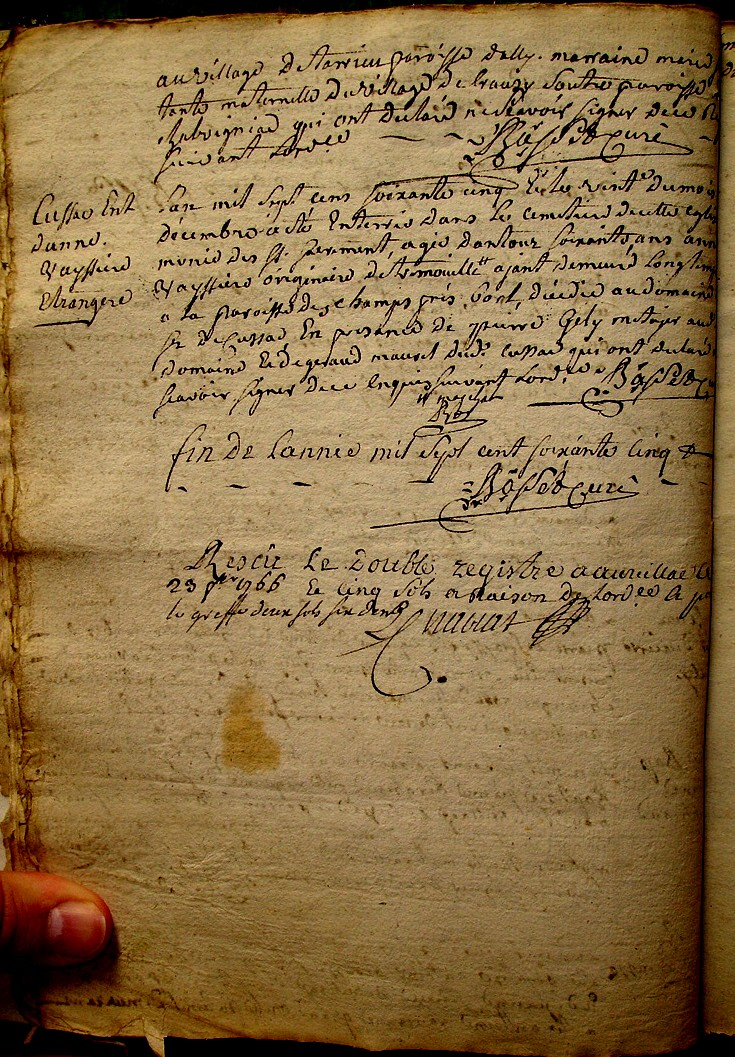 au village de tarrieu paroisse dally. marraine marie
tante maternelle du village de crauzy soutre paroisse
qui ont declaré ne scavoir signer de ce
suivant lord.ce Basset curé
Cussac Ent
danne
Vayssiere
Etrangere
Lan mil sept cens soixante cinq et le vint du mois
décembre a été Enterrée dans le cemetiere de cette eglise
munie des sts. sacrement, agée dantour soixante ans anne
Vayssiere originaire de tremouille ajant demeuré longtemp
a la paroisse des champs prés bort, décédée au domaine
sr de cussac En presence de pierre Gely metayer aud.
domaine Et de geraud maurel dud. cussac qui ont declaré
scavoir signer de ce Enquis suivant lord.ce Basset cu
fin de Lannée mil sept cent soixante cinq
Basset curé
Resçu le double registre a aurillac le
23 1766 et cinq sols a raison de lord.ce
le greffe deux sols six den